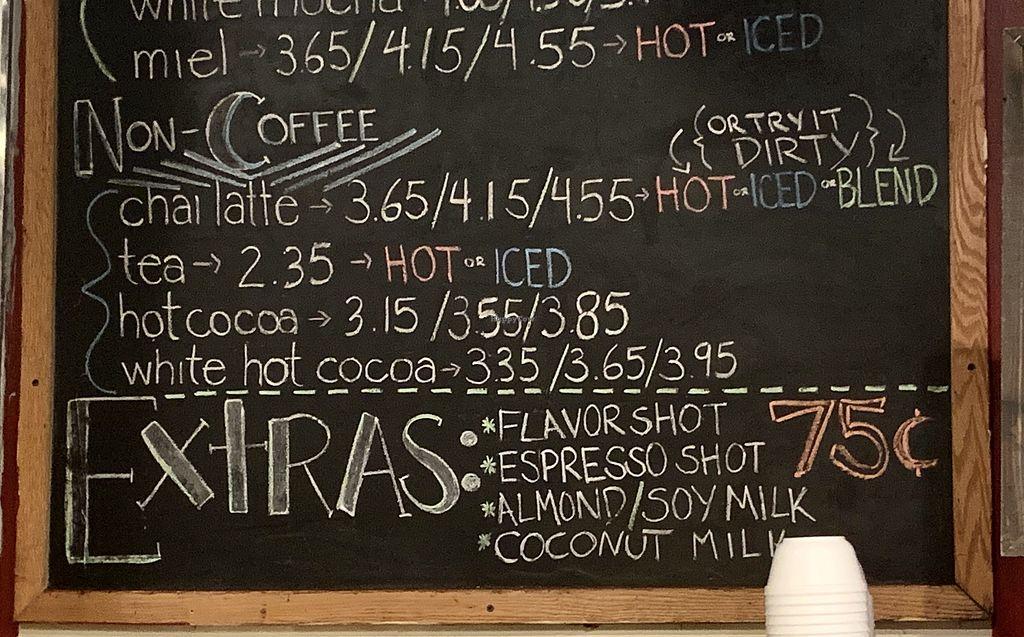 white mocha
miel → 3.65/4.15/4.55 → HOT OR ICED
NON-COFFEE
(OR TRY IT
DIRTY)
chai latte → 3.65/4.15/4.55 → HOT OR ICED OR BLEND
tea → 2.35 → HOT OR ICED
hot cocoa → 3.15/3.55/3.85
white hot cocoa → 3.35/3.65/3.95
EXTRAS:
*FLAVOR SHOT 75¢
*ESPRESSO SHOT
*ALMOND/SOY MILK
*COCONUT MILK